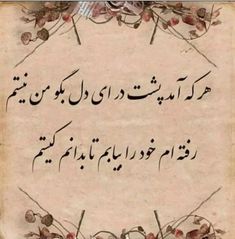 هر که آمد پشت در ای دل بگو من نیستم
رفته ام خود را بیابم تا بدانم کیستم